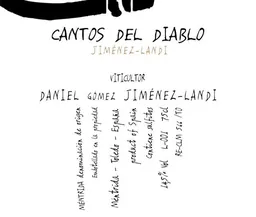 CANTOS DEL DIABLO
JIMÉNEZ-LANDI
VITICULTOR
DANIEL GÓMEZ JIMÉNEZ-LANDI
MÉNTRIDA denominación de origen
Embotellado en la propiedad
Méntrida - Toledo - España
product of Spain
Contiene sulfitos
14,5% Vol L-002 75cl
RE-CLM 566/TO